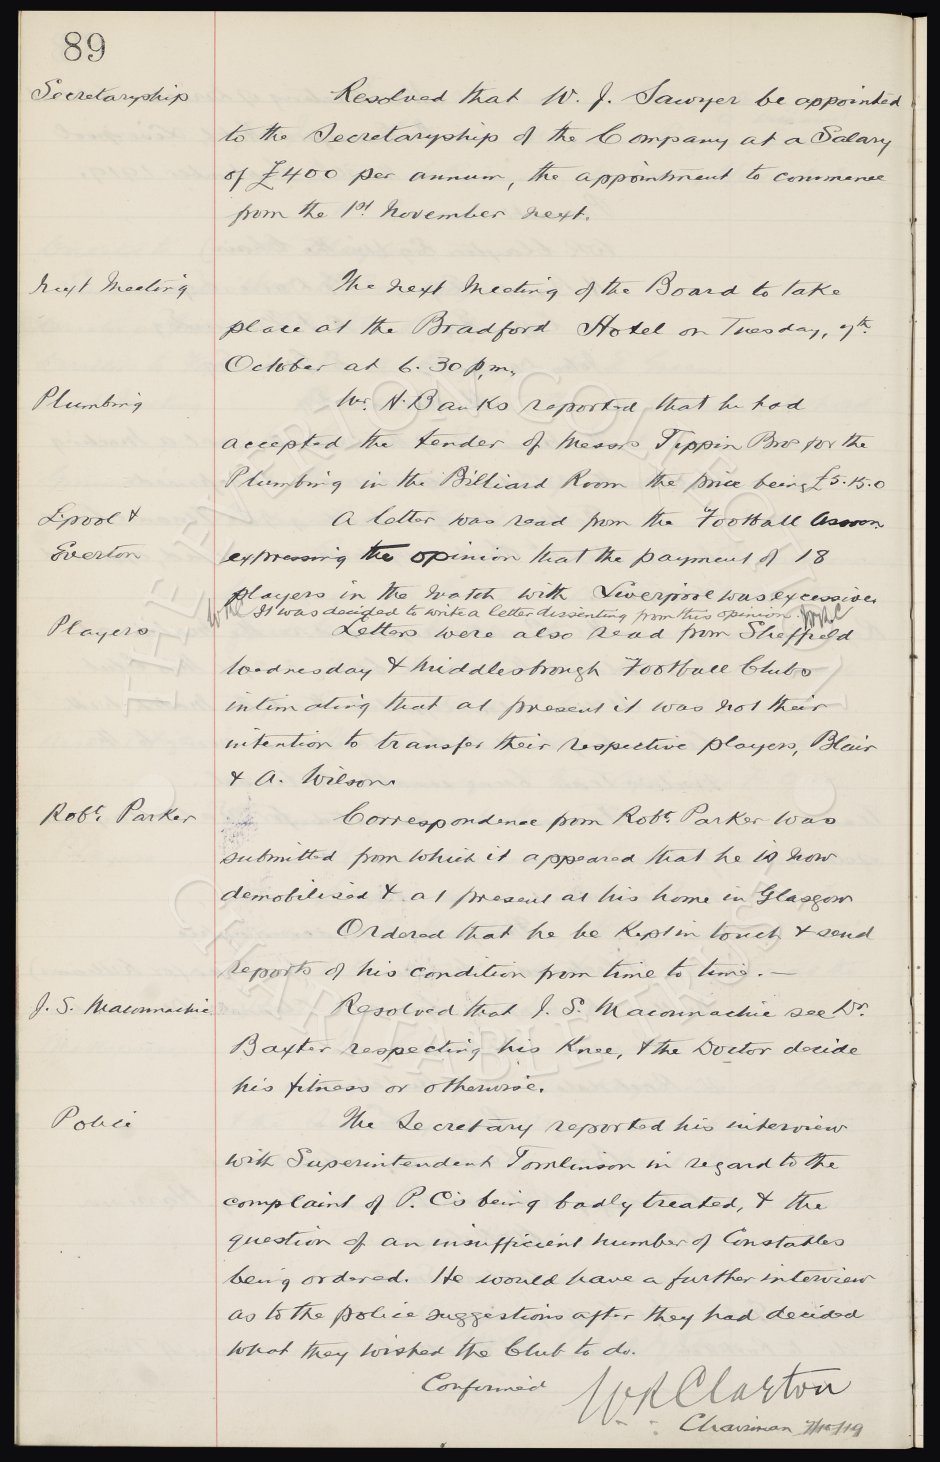 89
Secretaryship
Resolved that W. J. Sawyer be appointed
to the Secretaryship of the Company at a Salary
of £400 per annum, the appointment to commence
from the 1st November next.
Next Meeting
The next Meeting of the Board to take
place at the Bradford Hotel on Tuesday, 7th
October at 6.30 p.m.
Plumbing
Mr. H. Banks reported that he had
accepted the tender of Messrs Tippin Bros for the
Plumbing in the Billiard Room the price being £5.15.0
L'pool &
Everton
A letter was read from the Football Asson
expressing the opinion that the payment of 18
players in the match with Liverpool was excessive.
It was decided to write a letter dissenting from this opinion. WRC
Players
Letters were also read from Sheffield
Wednesday & Middlesbrough Football Clubs
intimating that at present it was not their
intention to transfer their respective players, Blair
& A. Wilson.
Robt. Parker
Correspondence from Robt. Parker was
submitted from which it appeared that he is now
demobilised & at present at his home in Glasgow
Ordered that he be kept in touch & send
reports of his condition from time to time. —
J. S. Maconnachie
Resolved that J. S. Maconnachie see Dr.
Baxter respecting his Knee, & the Doctor decide
his fitness or otherwise.
Police
The Secretary reported his interview
with Superintendent Tomlinson in regard to the
complaint of P. C's being badly treated, & the
question of an insufficient number of Constables
being ordered. He would have a further interview
as to the police suggestions after they had decided
what they wished the Club to do.
Confirmed W R Clayton
Chairman 7/10/19